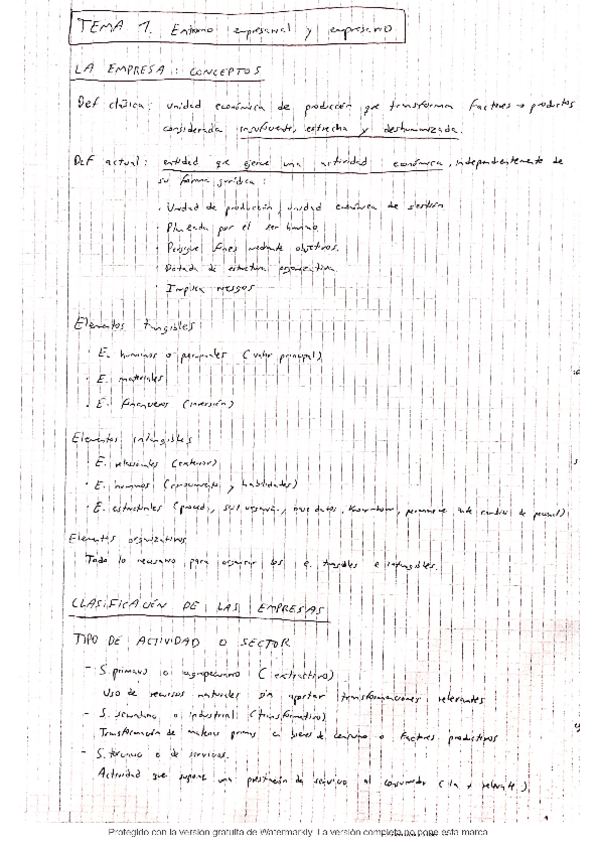 TEMA 1. Entorno empresarial y empresario
LA EMPRESA: CONCEPTOS
Def clásica: unidad económica de producción que transforma factores → productos
considerada insuficiente, estrecha y deshumanizada.
Def actual: entidad que ejerce una actividad económica, independientemente de
su forma jurídica:
· Unidad de producción, unidad económica de gestión
· Planeada por el ser humano
· Persigue fines mediante objetivos.
· Dotada de estructura organizativa
· Implica riesgos
Elementos tangibles
· E. humanos o personales (valor principal)
· E. materiales
· E. financieros (inversión)
Elementos intangibles
· E. relacionales (exterior)
· E. humanos (conocimiento y habilidades)
· E. estructurales (base datos, Know-how, permanece ante cambios de personal)
Elementos organizativos
Todo lo necesario para organizar los e. tangibles e intangibles.
CLASIFICACIÓN DE LAS EMPRESAS
TIPO DE ACTIVIDAD O SECTOR
- S. primario o agropecuario (extractivo)
Uso de recursos naturales sin aportar transformaciones relevantes
- S. secundario o industrial (transformativo)
Transformación de materias primas en bienes de consumo o factores productivos
- S. terciario o de servicios.
Actividad que supone una prestación de servicio al consumidor (la + relevante)
Protegido con la versión gratuita de Watermarkly. La versión completa no pone esta marca.